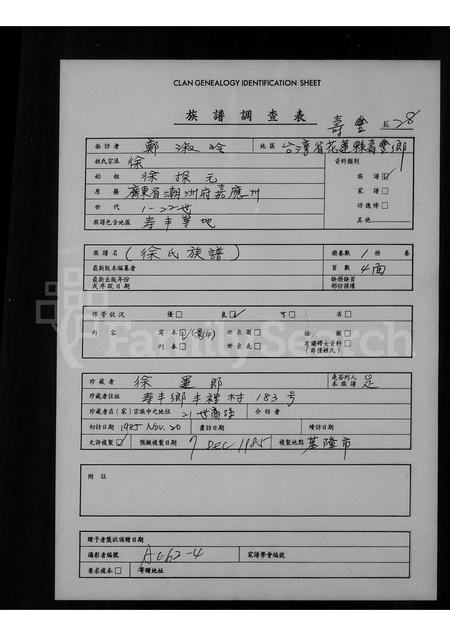 CLAN GENEALOGY IDENTIFICATION SHEET
族譜調查表 壽豐 鄉28
面訪者 鄭淑玲 地區 台灣省花蓮縣壽豐鄉
姓氏宗派 徐 資料類別
始祖 徐探元 族譜☑
原籍 廣東省潮洲府嘉應州 家譜□
世代 1-22世 功德榜□
族譜包含地區 寿丰等地 其他
族譜名 (徐氏族譜) 冊卷數 1 冊 卷
最新版本編纂者 頁數 4面
最新出版年份或序跋日期 缺冊缺頁部份揍補
保管狀況 優□ 良☑ 可□ 劣□
內容 寫本☑(影印) 世系圖□ 插圖□
刊本□ 世系表□ 有關禪士資料□(非僅姓氏)
FamilySearch
珍藏者 徐運郎 是否列入本族譜 是
珍藏者住址 寿丰鄉丰裡村183号
珍藏者在(家)宗族中之地位 21世裔孫 介紹者
初訪日期 1985 Nov. 20 覆訪日期 續訪日期
允許複製☑ 預擬複製日期 7 Dec 1985 複製地點 基隆市
附註
贈予者獎狀頒贈日期
攝影者編號 A062-4 家譜學會編號
要求複本□ 寄贈地址